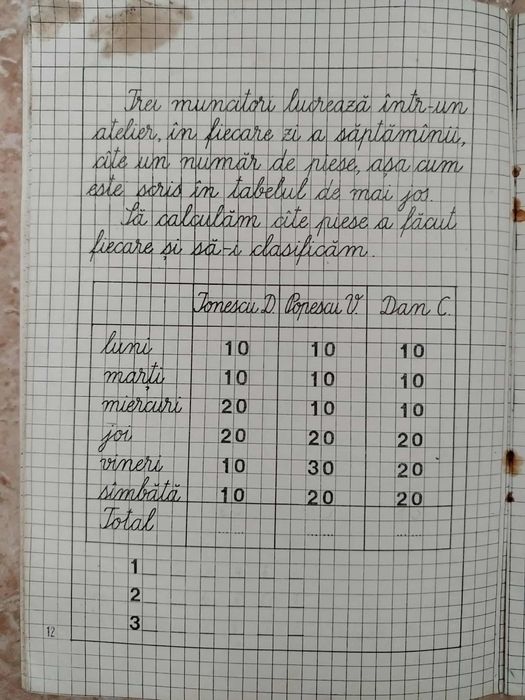 Trei muncitori lucrează într-un
atelier, în fiecare zi a săptămînii,
cîte un număr de piese, așa cum
este scris în tabelul de mai jos.
Să calculăm cîte piese a făcut
fiecare și să-i clasificăm.
Ionescu D. Popescu V. Dan C.
luni 10 10 10
marți 10 10 10
miercuri 20 10 10
joi 20 20 20
vineri 10 30 20
sîmbătă 10 20 20
Total ...... ...... ......
1
2
3
12